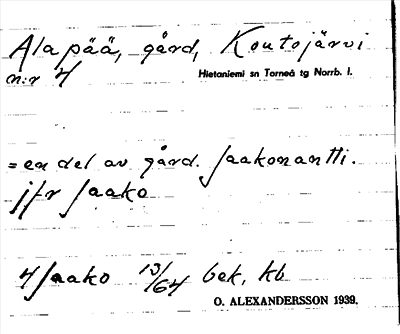 Alapää, gård, Koutojärvi
n:r 4 Hietaniemi sn Torneå tg Norrb. l.
= en del av gård. Jaakonantti.
jfr Jaako
4 Jaako 13/64 bek, kb
O. ALEXANDERSSON 1939.